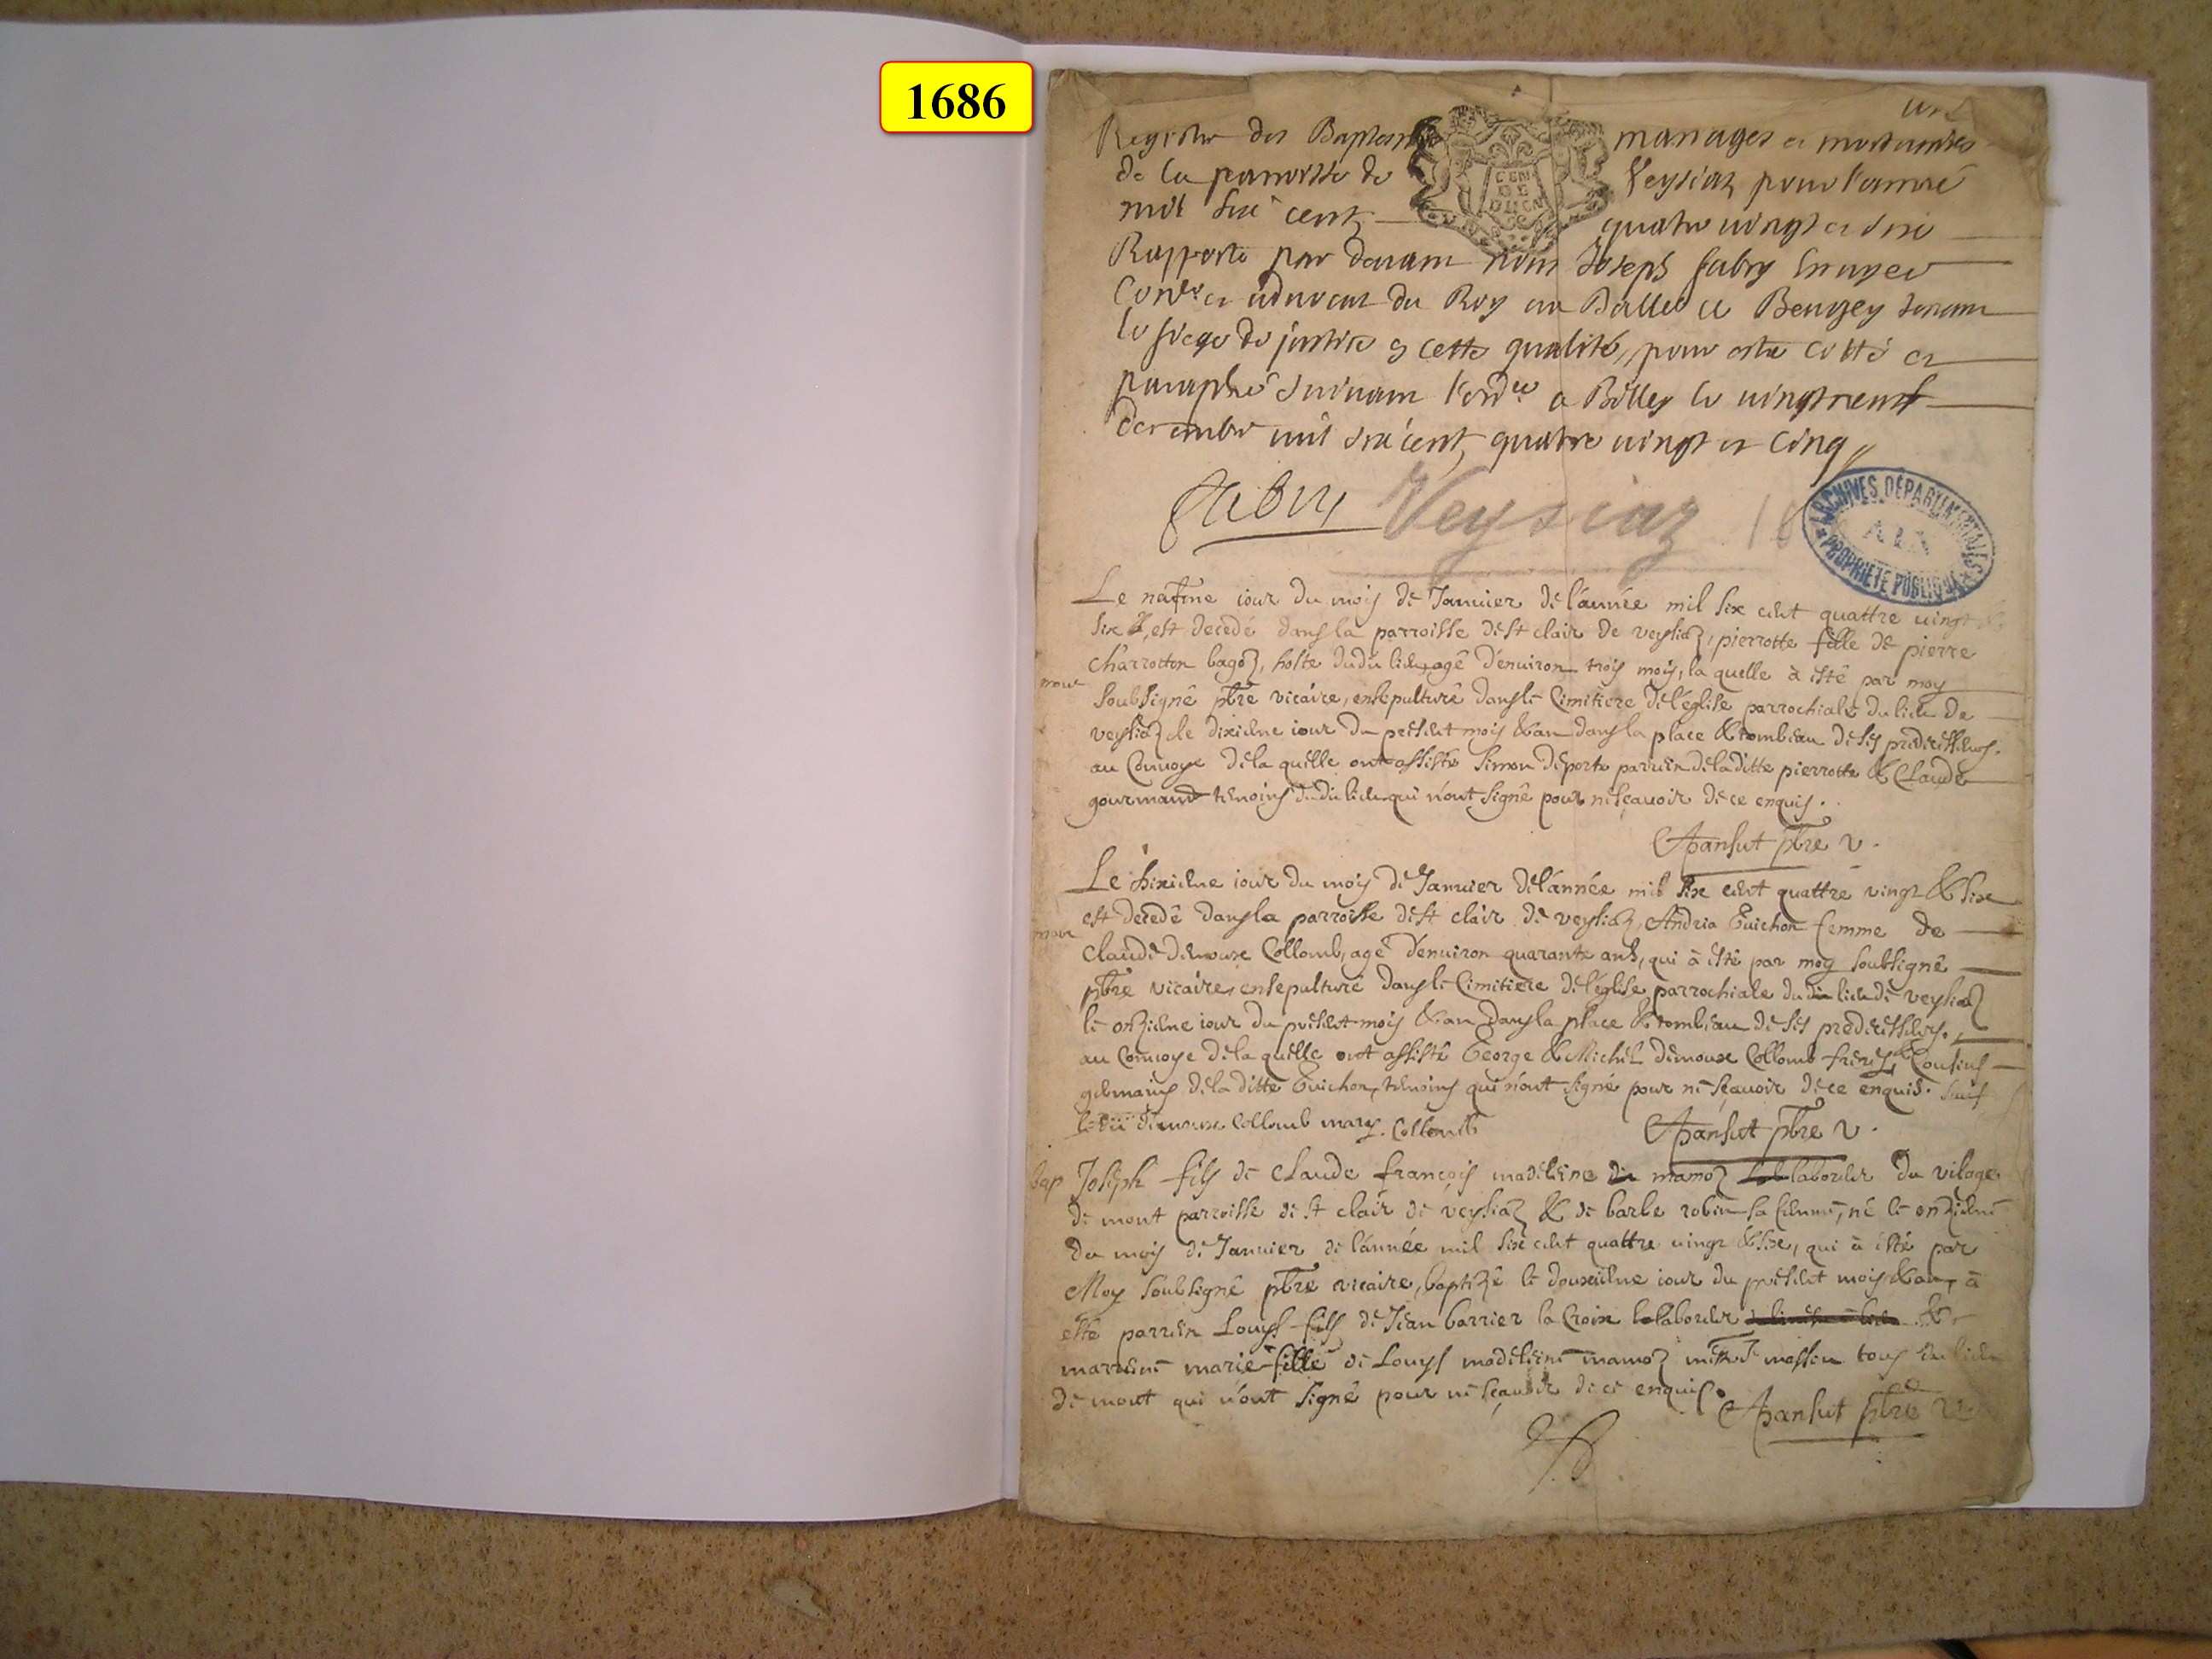 1686
Registre des Baptesmes mariages et mortuaires
de la parroisse de Veysiaz pour l'année
mil six cent quatre vingt et six
Rapporté par devant nous Joseph fabry Escuyer
Con.er et advocat du Roy au Balliage de Beugey tenant
le siege de justice en cette qualité, pour estre cotté et
paraphé suivant l'ord.ce a Belley le vingt neuf
decembre mil six cent quatre vingt et cinq
fabry Veysiaz 16
ARCHIVES DÉPARTEMENTALES
AIN
PROPRIÉTÉ PUBLIQUE
Le iour du mois de Januier de l'année mil six cent quattre vingt
six est decedé dans la parroisse de st clair de veysiaz, pierrotte fille de pierre
charrotton bagoz, hoste dudit lieu, agé d'enuiron trois mois, la quelle à esté par moy
mort
soubsigné pbre vicaire, ensepulturé dans le Cimitiere de l'église parrochiale du lieu de
veysiaz le dixieme iour du present mois & an dans la place & tombeau de ses predecesseurs.
au Convoye de la quelle ont assisté Simon deporte parrien de la ditte pierrotte & Claude
gourmand temoins dudit lieu qui n'ont signé pour ne sçauoir de ce enquis.
pansut pbre v.
Le dixieme iour du mois de Januier de l'année mil six cent quattre vingt & six
est decedé dans la parroisse de st clair de veysiaz, Andria Guichon femme de
mort
claude demoux Collomb, agé d'enuiron quarante ans, qui à esté par moy soubsigné
pbre vicaire, ensepulturé dans le Cimitiere de l'église parrochiale dudit lieu de veysiaz
le onzieme iour du present mois & an dans la place & tombeau de ses predecesseurs,
au Convoye de la quelle ont assisté George & Michel demoux Collomb freres, & Cousins
germains de la ditte Guichon, temoins qui n'ont signé pour ne sçauoir de ce enquis. sauf
ledit demoux Collomb mary. Collomb
pansut pbre v.
bap Joseph fils de claude françois madeleine mamoz laboreur du vilage
de mont parroisse de st clair de veysiaz & de barbe robin sa femme, né le onzieme
du mois de Januier de l'année mil six cent quattre vingt & six, qui à esté par
Moy soubsigné pbre vicaire, baptizé le douxieme iour du present mois & an, à
esté parrien Louys fils de Jean barrier la Croix laboreur &
marreine marie fille de Louys madeleine mamoz massieu tous du lieu
de mont qui n'ont signé pour ne sçauoir de ce enquis.
pansut pbre v